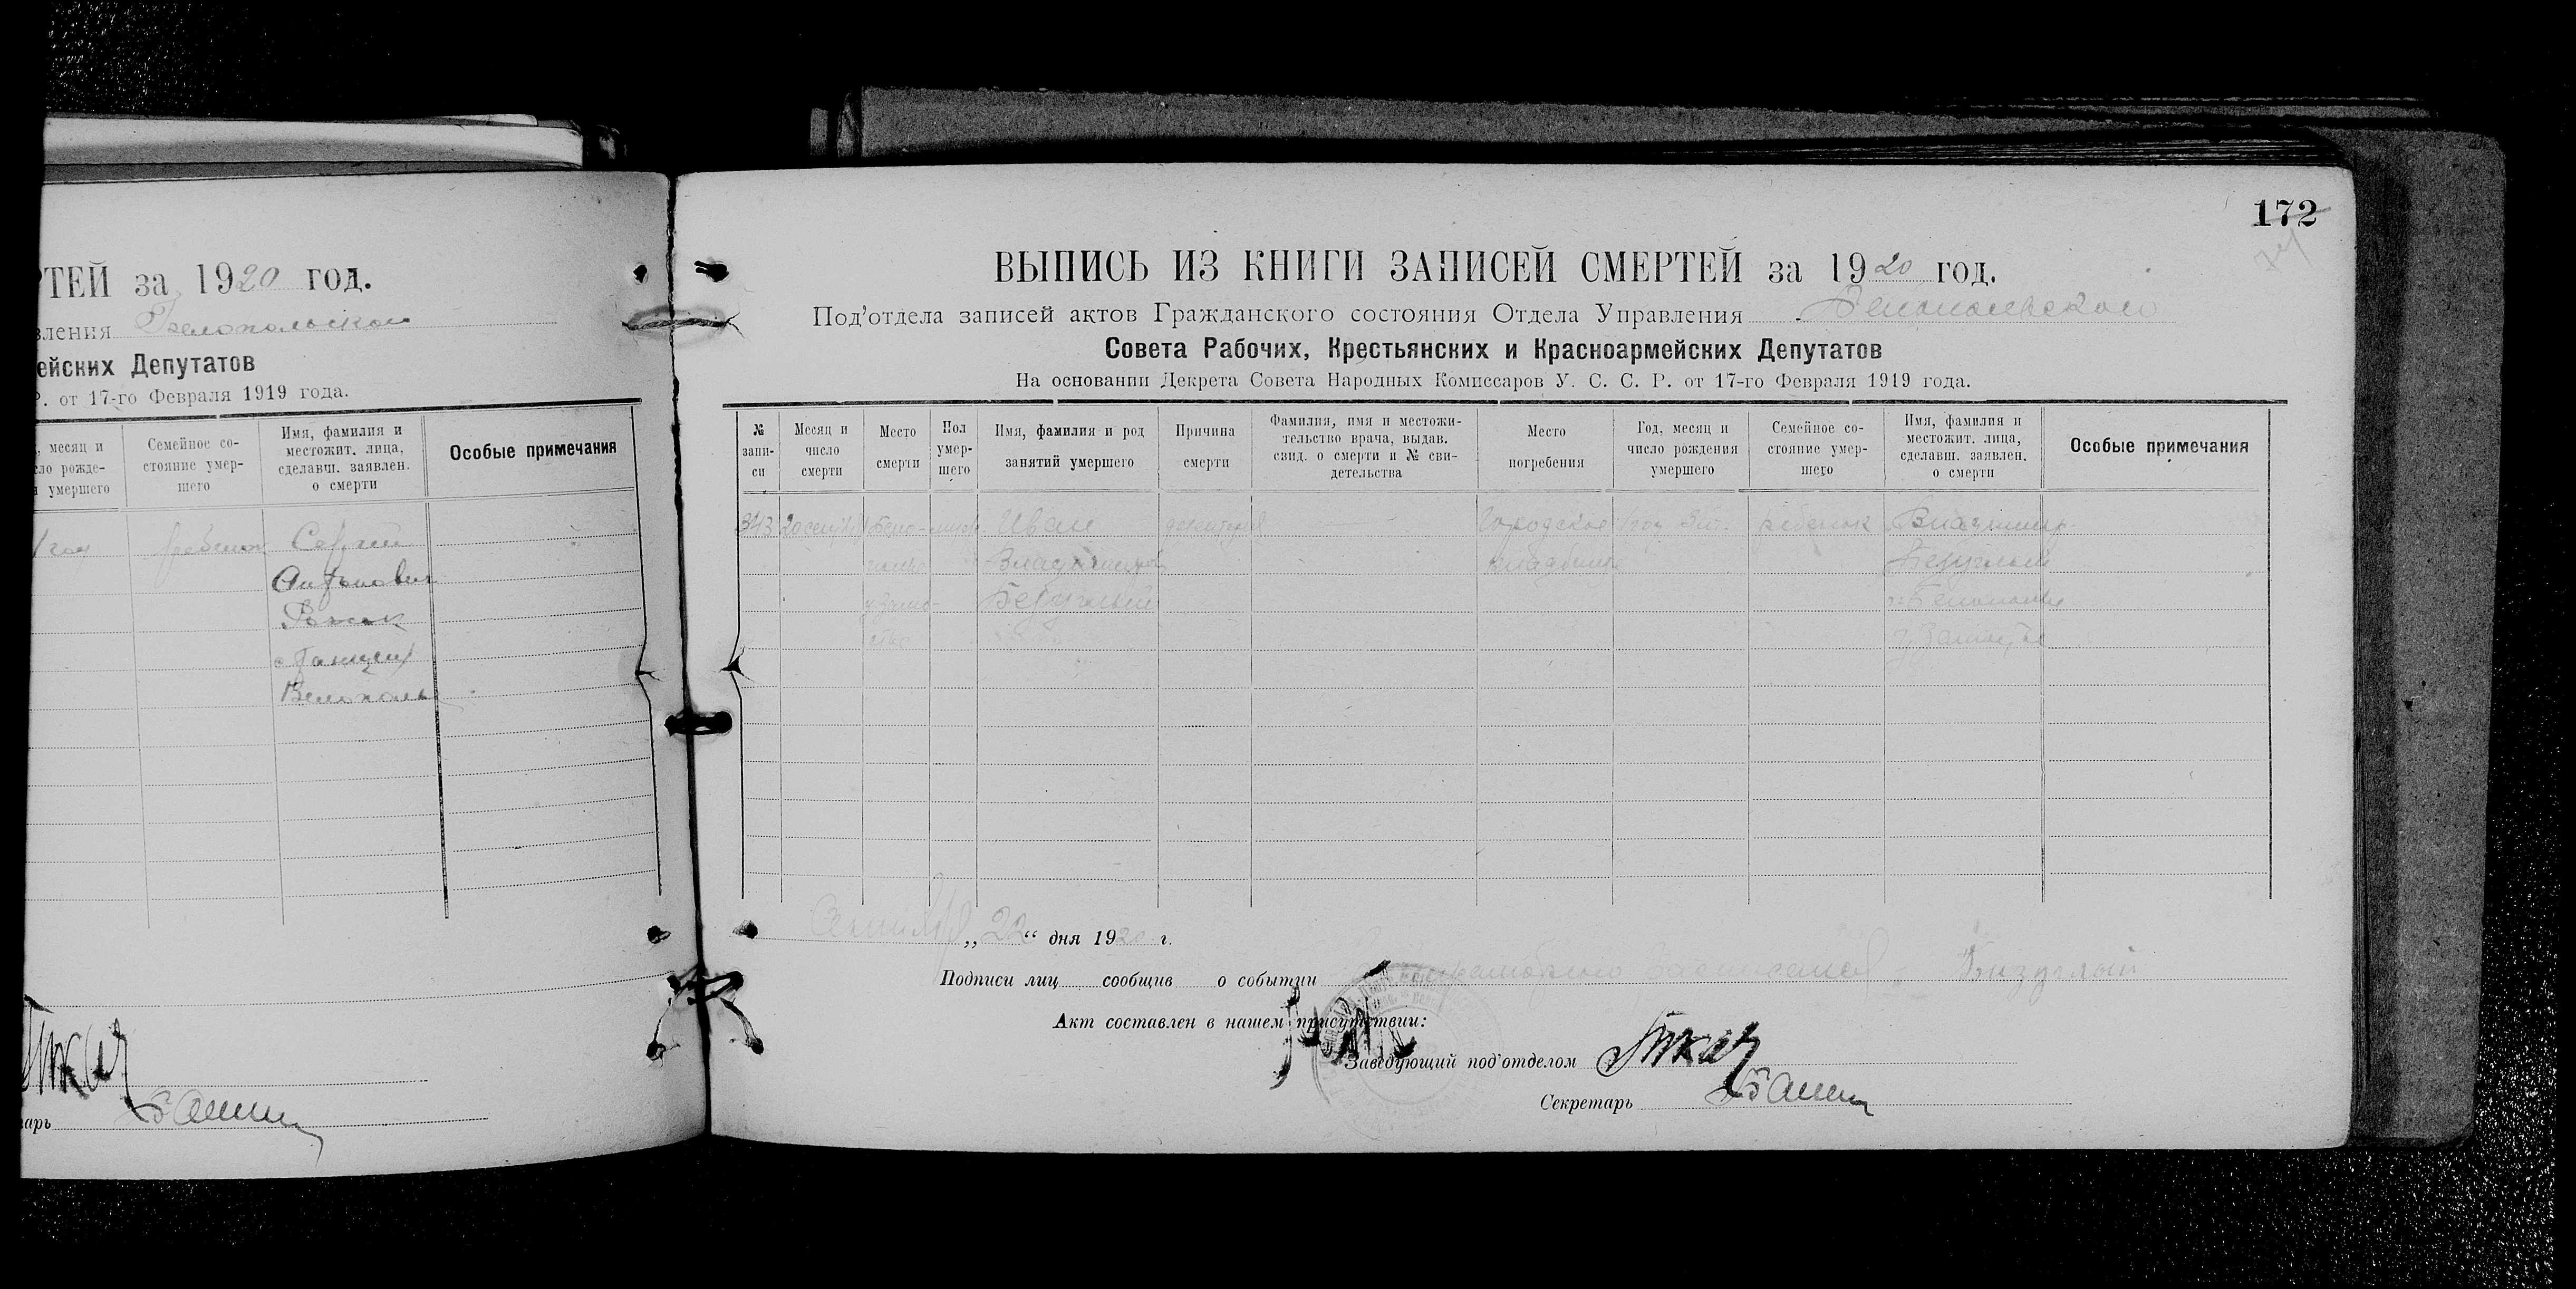 РТЕЙ за 1920 год.
вления Белопольской
ейских Депутатов
Р. от 17-го Февраля 1919 года.
, месяц и
сло рожде-
я умершего
Семейное со-
стояние умер-
шего
Имя, фамилия и
местожит. лица,
сделавш. заявлен.
о смерти
Особые примечания
1 год
ребенок
Сергей
Антонович
Белополь
Ткач
тарь
172
ВЫПИСЬ ИЗ КНИГИ ЗАПИСЕЙ СМЕРТЕЙ за 1920 год.
Под'отдела записей актов Гражданского состояния Отдела Управления Белопольского
Совета Рабочих, Крестьянских и Красноармейских Депутатов
На основании Декрета Совета Народных Комиссаров У. С. С. Р. от 17-го Февраля 1919 года.
№
запи-
си
Месяц и
число
смерти
Место
смерти
Пол
умер-
шего
Имя, фамилия и род
занятий умершего
Причина
смерти
Фамилия, имя и местожи-
тельство врача, выдав.
свид. о смерти и № сви-
детельства
Место
погребения
Год, месяц и
число рождения
умершего
Семейное со-
стояние умер-
шего
Имя, фамилия и
местожит. лица,
сделавш. заявлен.
о смерти
Особые примечания
343
20 сентября
Бело-
полье
муж.
Иван
Владимиров
Безуглый
дизентерия
Городское
кладбище
1 год
ребенок
Владимир
Безуглый
г. Белополье
Сентября „22“ дня 1920 г.
Подписи лиц сообщив о событии Безуглый
Акт составлен в нашем присутствии:
Заведующий под'отделом Ткач
Секретарь